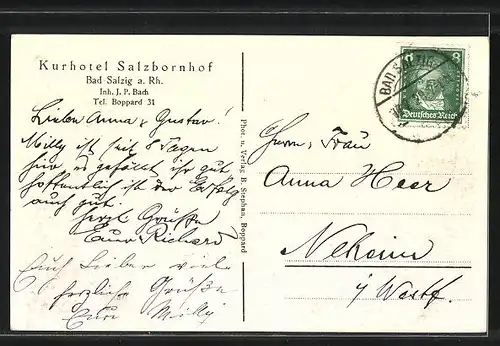 Kurhotel Salzbornhof
Bad Salzig a. Rh.
Inh. J. P. Bach
Tel. Boppard 31
Lieben Anna & Gustav!
Milly ist seit 8 Tagen
hier es gefällt ihr gut
hoffentlich ist der Erfolg
auch gut.
herzl Grüße
Euer Richard
Euch Lieben viele
herzliche Grüße
Eure Milly
Phot. u. Verlag B. Stephan, Boppard
8 8
Deutsches Reich
BAD SALZIG
Herrn, Frau
Anna Heer
Neheim
i/ Westf.